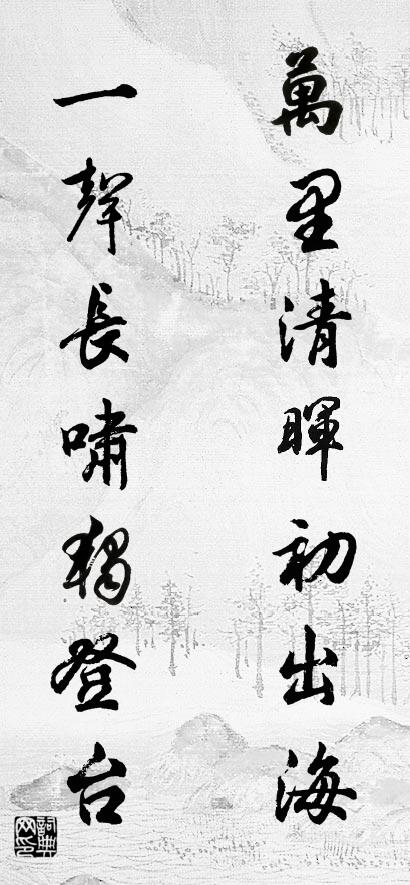 萬里清暉初出海
一聲長嘯獨登台
詞典
网印